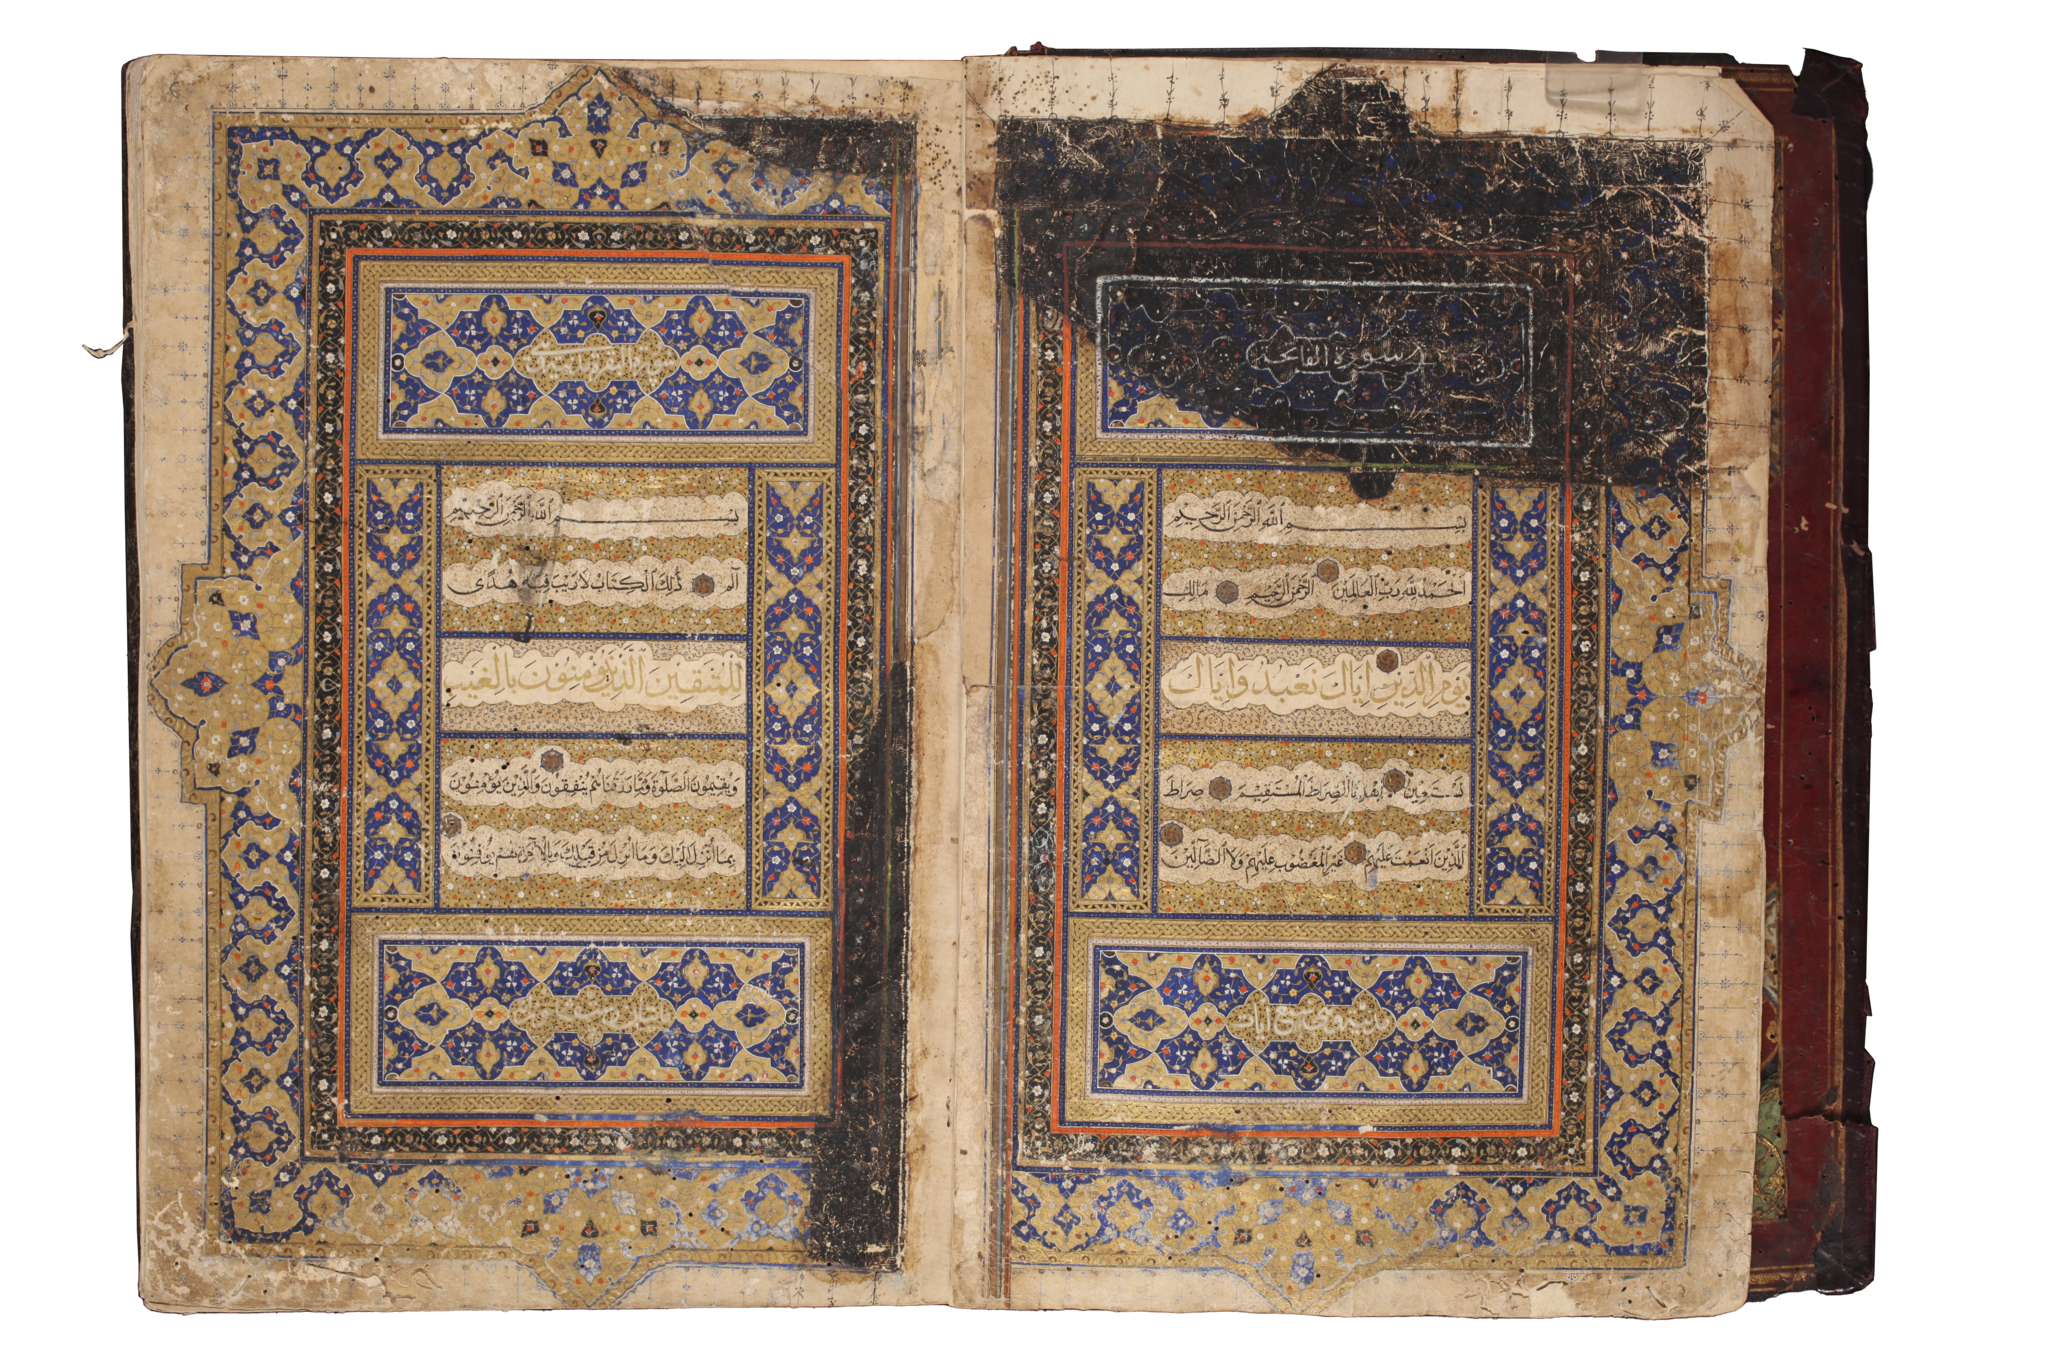 سورة الفاتحة
بسم الله الرحمن الرحيم
الحمد لله رب العالمين الرحمن الرحيم مالك
يوم الدين إياك نعبد وإياك
نستعين اهدنا الصراط المستقيم صراط
الذين أنعمت عليهم غير المغضوب عليهم ولا الضالين
سبع آيات
سورة البقرة
بسم الله الرحمن الرحيم
الم ذلك الكتاب لا ريب فيه هدى
للمتقين الذين يؤمنون بالغيب
ويقيمون الصلوة ومما رزقناهم ينفقون والذين يؤمنون
بما أنزل إليك وما أنزل من قبلك وبالآخرة هم يوقنون